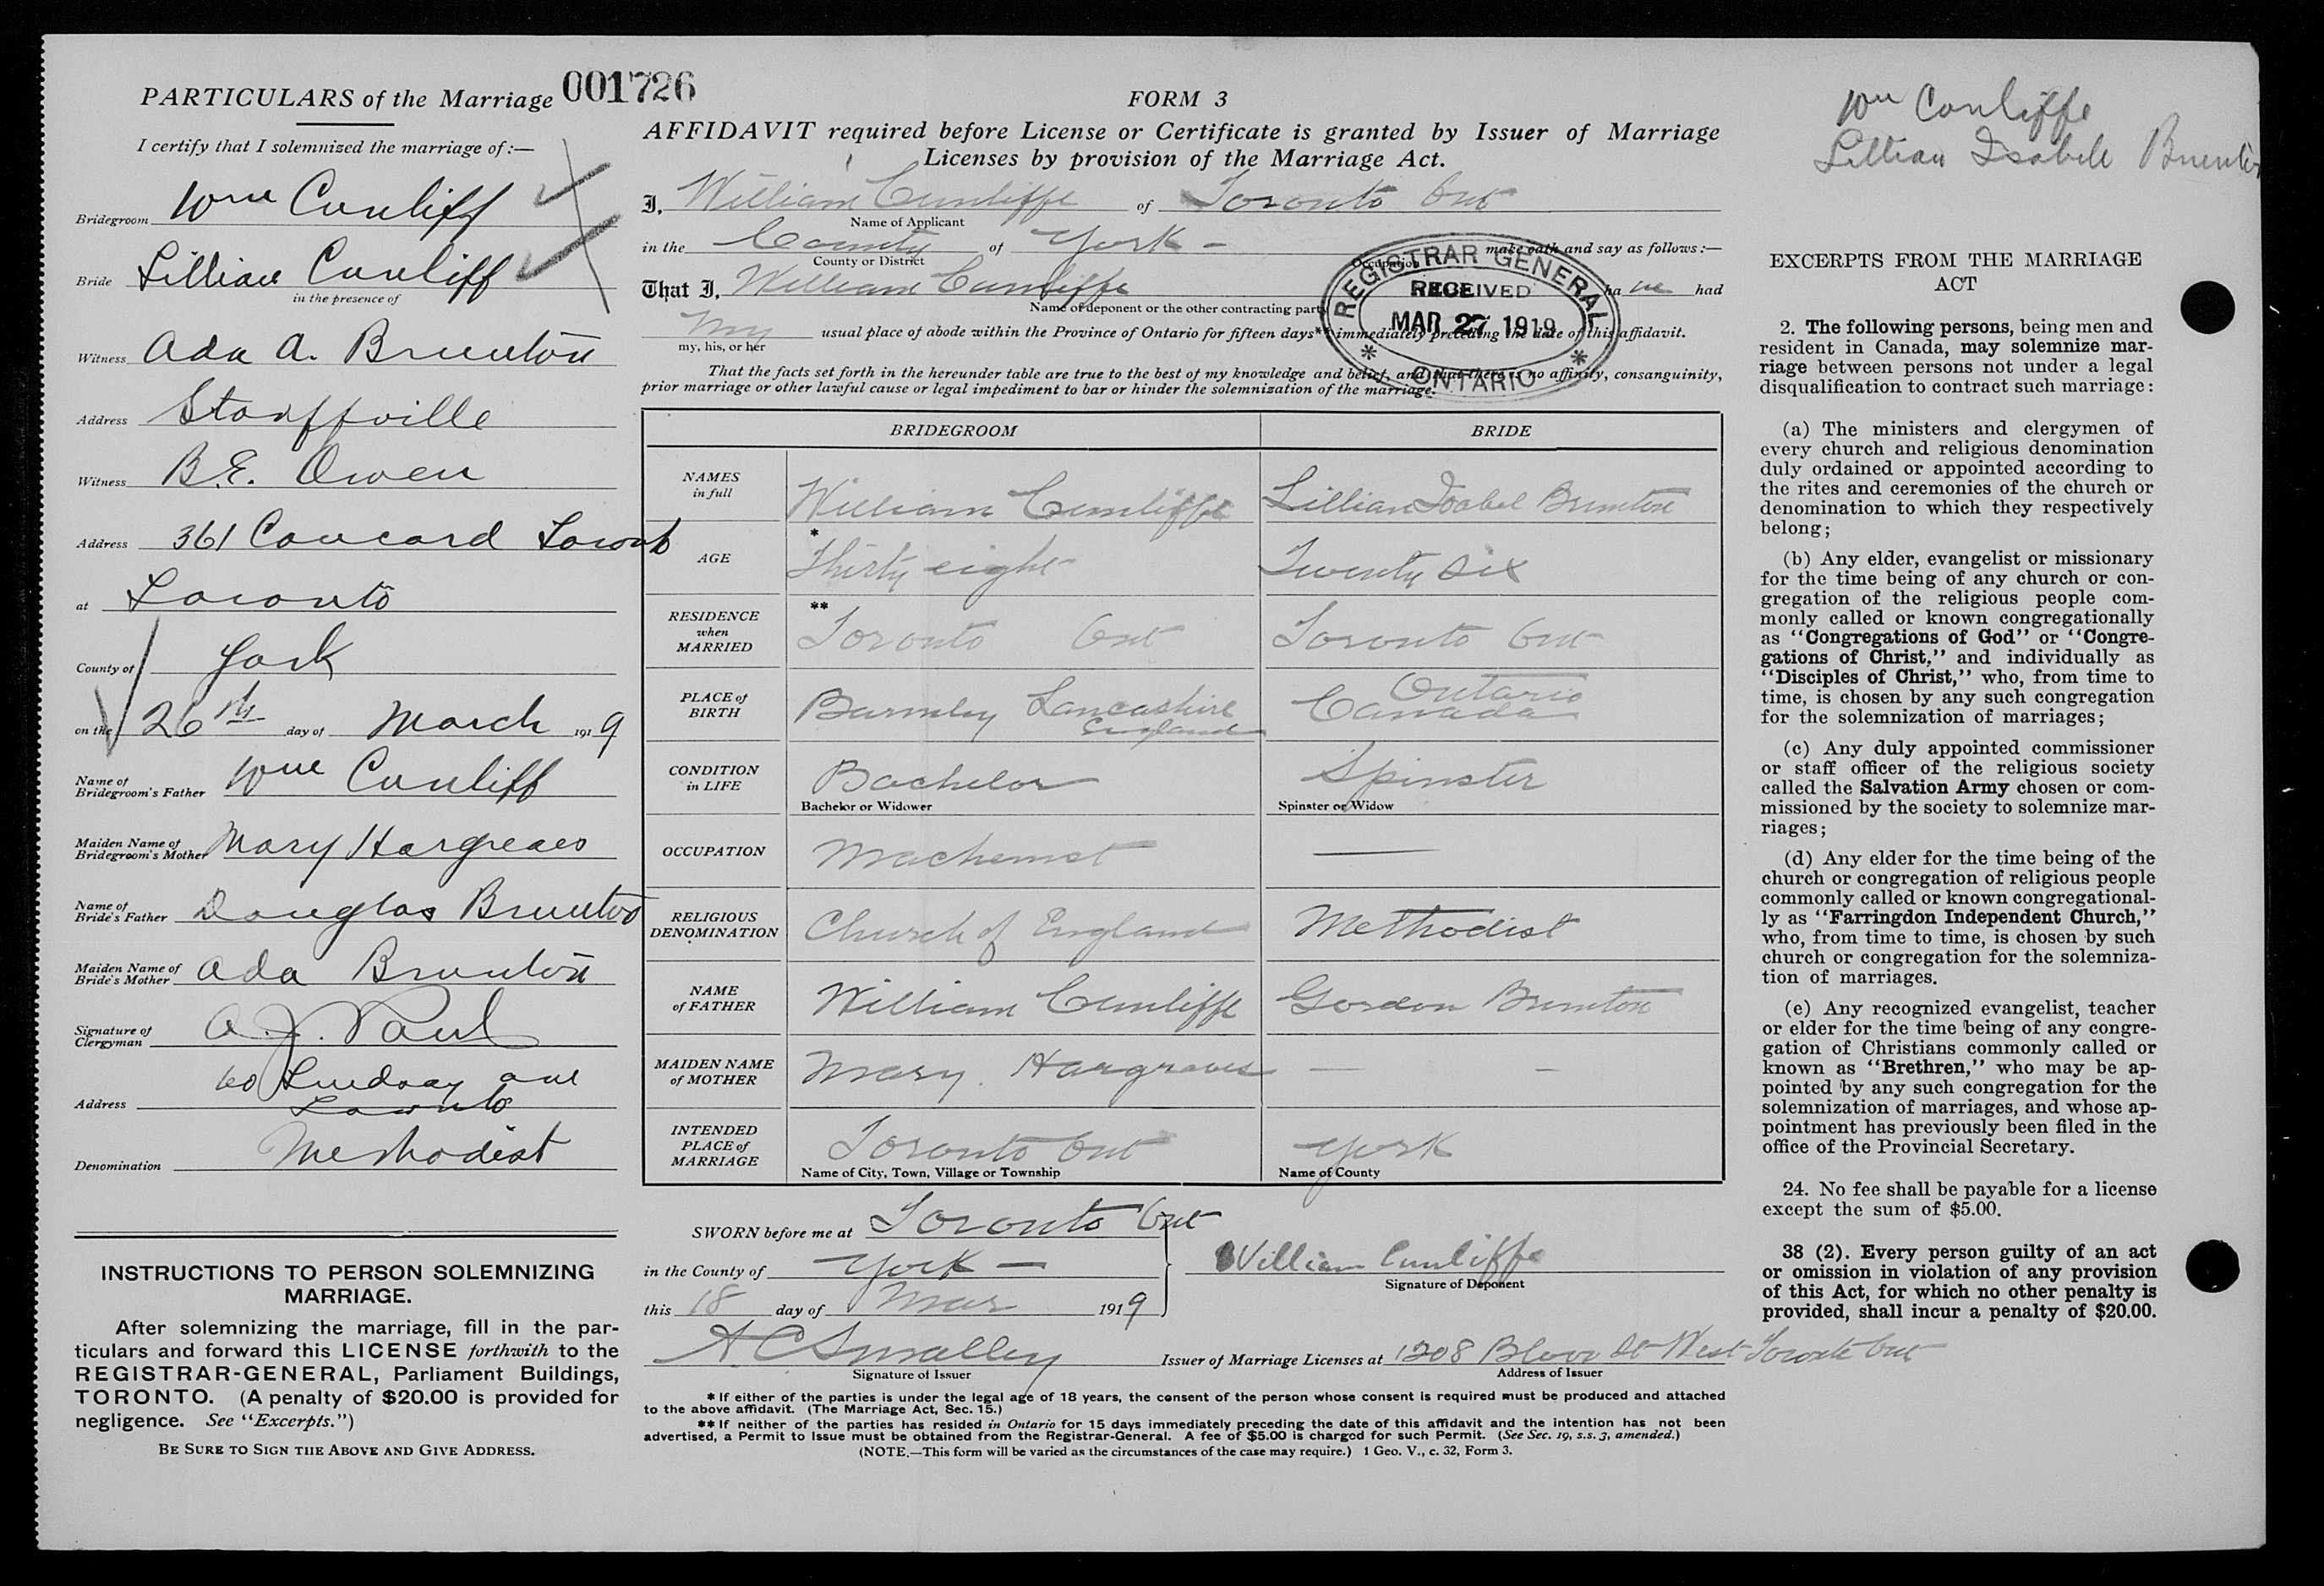 PARTICULARS of the Marriage 001726
I certify that I solemnized the marriage of:—
Bridegroom Wm Cunliff
Bride Lillian Cunliff
in the presence of
Witness Ada A. Brunton
Address Stouffville
Witness B.E. Owen
Address 361 Concord Toronto
at Toronto
County of York
on the 26th day of March 1919
Name of Bridegroom's Father Wm Cunliff
Maiden Name of Bridegroom's Mother Mary Hargreaes
Name of Bride's Father Douglas Brunton
Maiden Name of Bride's Mother Ada Brunton
Signature of Clergyman A. J. Paul
Address 60 Lindsay ave
Toronto
Denomination Methodist
INSTRUCTIONS TO PERSON SOLEMNIZING
MARRIAGE.
After solemnizing the marriage, fill in the par-
ticulars and forward this LICENSE forthwith to the
REGISTRAR-GENERAL, Parliament Buildings,
TORONTO. (A penalty of $20.00 is provided for
negligence. See "Excerpts.")
BE SURE TO SIGN THE ABOVE AND GIVE ADDRESS.
FORM 3
AFFIDAVIT required before License or Certificate is granted by Issuer of Marriage
Licenses by provision of the Marriage Act.
I, William Cunliffe of Toronto Ont
Name of Applicant
in the County of York - make oath and say as follows:—
County or District Occupation
That I, William Cunliffe have had
Name of deponent or the other contracting party
My usual place of abode within the Province of Ontario for fifteen days** immediately preceding the date of this affidavit.
my, his, or her
REGISTRAR GENERAL
RECEIVED
MAR 27 1919
* ONTARIO *
That the facts set forth in the hereunder table are true to the best of my knowledge and belief, and that there is no affinity, consanguinity,
prior marriage or other lawful cause or legal impediment to bar or hinder the solemnization of the marriage.
BRIDEGROOM BRIDE
NAMES in full William Cunliffe Lillian Isabel Brunton
AGE * Thirty eight Twenty Six
RESIDENCE when MARRIED ** Toronto Ont Toronto Ont
PLACE of BIRTH Burnley Lancashire England Ontario Canada
CONDITION in LIFE Bachelor Spinster
Bachelor or Widower Spinster or Widow
OCCUPATION Machenist —
RELIGIOUS DENOMINATION Church of England Methodist
NAME of FATHER William Cunliffe Gordon Brunton
MAIDEN NAME of MOTHER Mary. Hargraves — —
INTENDED PLACE of MARRIAGE Toronto Ont York
Name of City, Town, Village or Township Name of County
SWORN before me at Toronto Ont
in the County of York — William Cunliffe
Signature of Deponent
this 18 day of Mar 1919
A C Smalley Issuer of Marriage Licenses at 1208 Bloor St West Toronto Ont
Signature of Issuer Address of Issuer
* If either of the parties is under the legal age of 18 years, the consent of the person whose consent is required must be produced and attached
to the above affidavit. (The Marriage Act, Sec. 15.)
** If neither of the parties has resided in Ontario for 15 days immediately preceding the date of this affidavit and the intention has not been
advertised, a Permit to Issue must be obtained from the Registrar-General. A fee of $5.00 is charged for such Permit. (See Sec. 19, s.s. 3, amended.)
(NOTE.—This form will be varied as the circumstances of the case may require.) 1 Geo. V., c. 32, Form 3.
Wm Cunliffe
Lillian Isabell Brunton
EXCERPTS FROM THE MARRIAGE
ACT
2. The following persons, being men and
resident in Canada, may solemnize mar-
riage between persons not under a legal
disqualification to contract such marriage:
(a) The ministers and clergymen of
every church and religious denomination
duly ordained or appointed according to
the rites and ceremonies of the church or
denomination to which they respectively
belong;
(b) Any elder, evangelist or missionary
for the time being of any church or con-
gregation of the religious people com-
monly called or known congregationally
as "Congregations of God" or "Congre-
gations of Christ," and individually as
"Disciples of Christ," who, from time to
time, is chosen by any such congregation
for the solemnization of marriages;
(c) Any duly appointed commissioner
or staff officer of the religious society
called the Salvation Army chosen or com-
missioned by the society to solemnize mar-
riages;
(d) Any elder for the time being of the
church or congregation of religious people
commonly called or known congregational-
ly as "Farringdon Independent Church,"
who, from time to time, is chosen by such
church or congregation for the solemniza-
tion of marriages.
(e) Any recognized evangelist, teacher
or elder for the time being of any congre-
gation of Christians commonly called or
known as "Brethren," who may be ap-
pointed by any such congregation for the
solemnization of marriages, and whose ap-
pointment has previously been filed in the
office of the Provincial Secretary.
24. No fee shall be payable for a license
except the sum of $5.00.
38 (2). Every person guilty of an act
or omission in violation of any provision
of this Act, for which no other penalty is
provided, shall incur a penalty of $20.00.